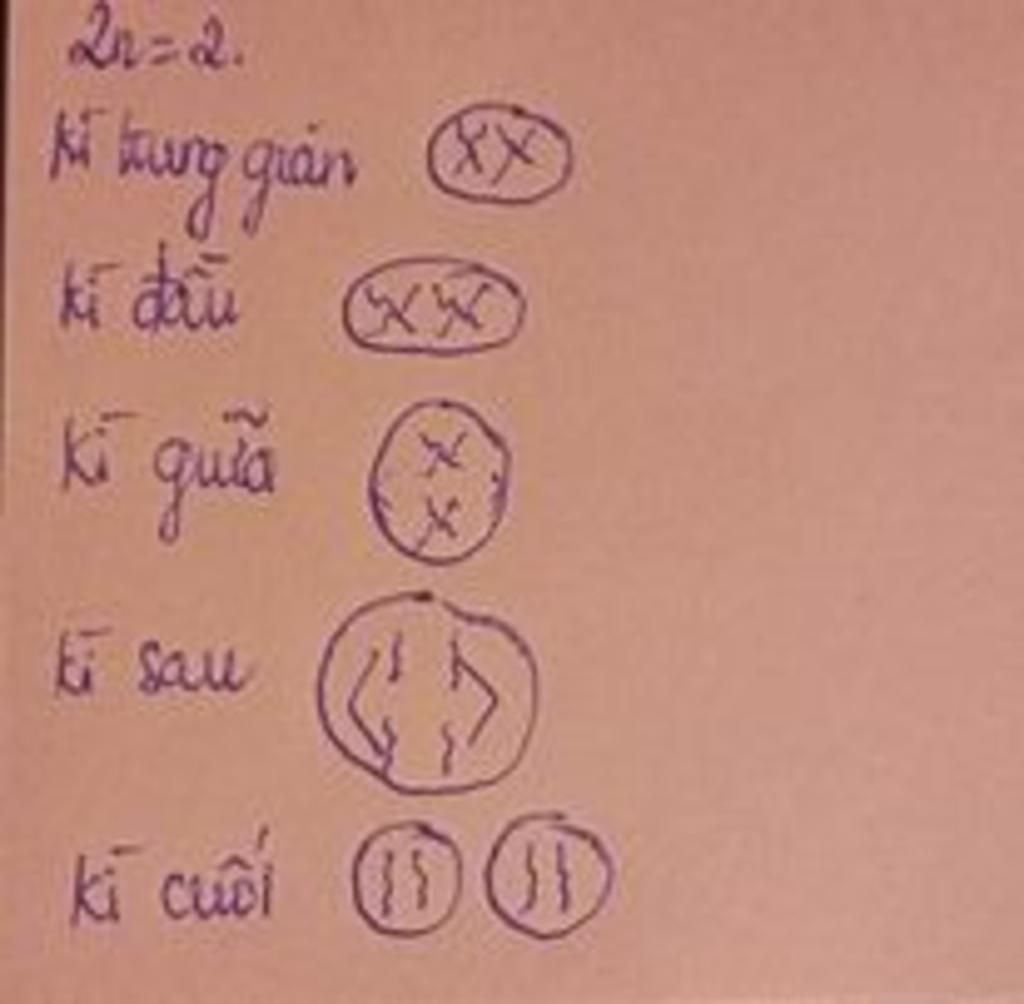 2n = 2.
kì trung gian
kì đầu
kì giữa
kì sau
kì cuối